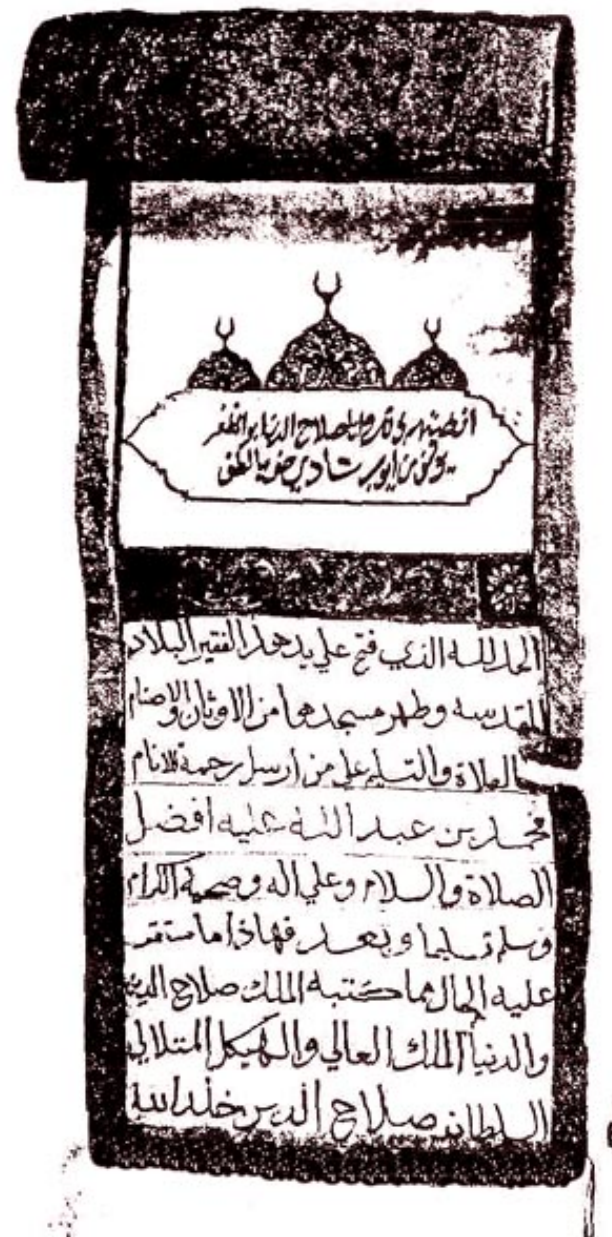 صلاح الدنيا
بن ايوب شادي
الحمد لله الذي فتح علي يد هذا الفقير البلاد
المقدسه وطهر مسجدها من الاوثان والاصنام
والصلاة والتسليم علي من ارسل رحمة للانام
محمد بن عبد الله عليه افضل
الصلاة والسلام وعلي اله وصحبه الكرام
وسلم تسليما وبعد فهاذا ما استقر
عليه الحال مما كتبه الملك صلاح الدين
والدنيا الملك العالي والهيكل المتلالي
السلطان صلاح الدين خلد الله